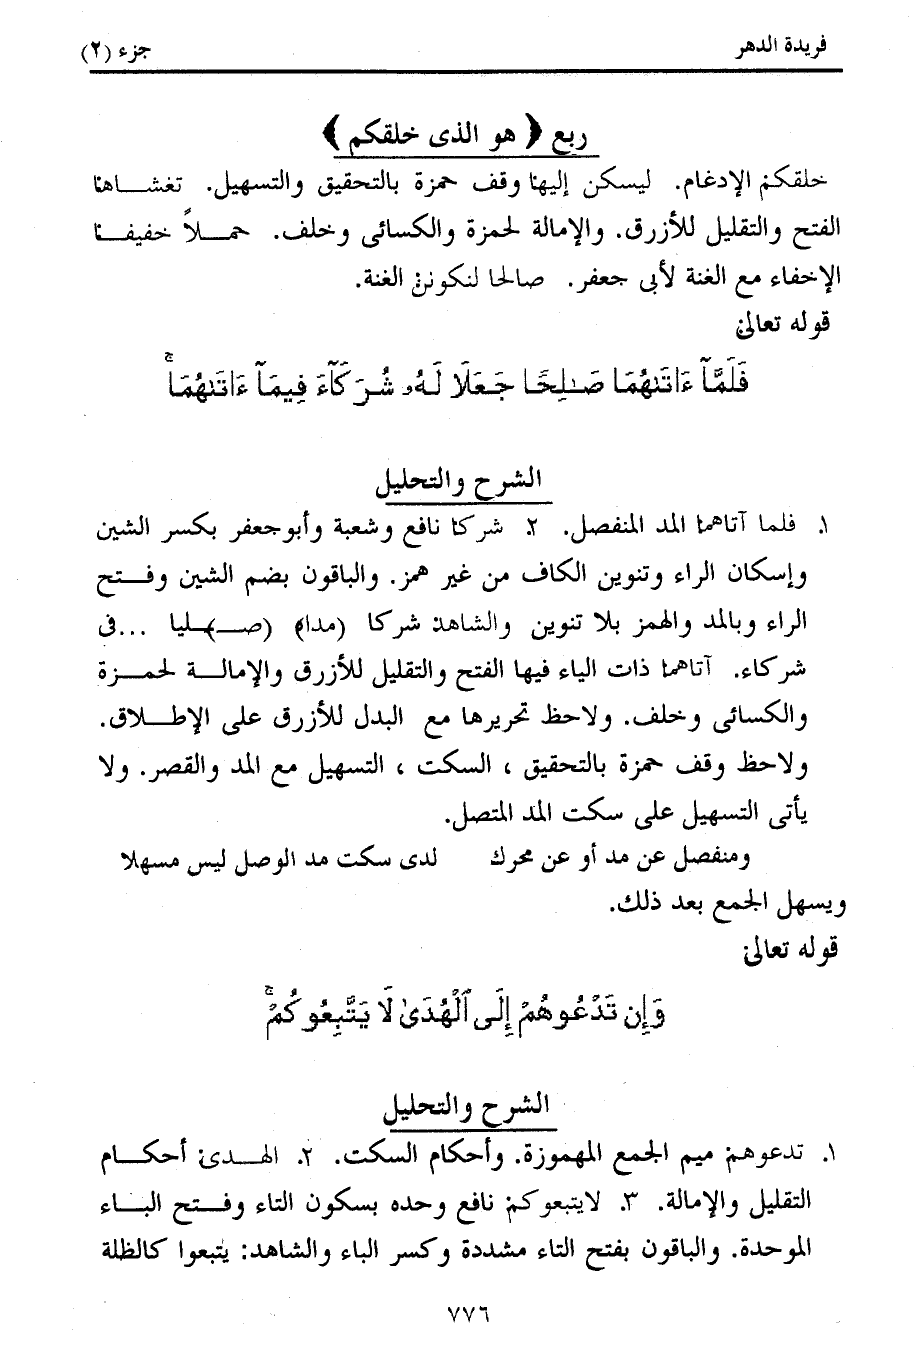 فريدة الدهر
جزء (٢)
ربع ﴿ هو الذى خلقكم ﴾
خلقكم الإدغام. ليسكن إليها وقف حمزة بالتحقيق والتسهيل. تغشاها
الفتح والتقليل للأزرق. والإمالة لحمزة والكسائى وخلف. حملاً خفيفا
الإخفاء مع الغنة لأبى جعفر. صالحا لنكونن الغنة.
قوله تعالى
فَلَمَّآ ءَاتَىٰهُمَا صَٰلِحًا جَعَلَا لَهُۥ شُرَكَآءَ فِيمَآ ءَاتَىٰهُمَاۚ
الشرح والتحليل
١. فلما آتاهما المد المنفصل. ٢. شركا نافع وشعبة وأبوجعفر بكسر الشين
وإسكان الراء وتنوين الكاف من غير همز. والباقون بضم الشين وفتح
الراء وبالمد والهمز بلا تنوين والشاهد: شركا (مدا) (صـ)ـليا ...فى
شركاء. آتاهما ذات الياء فيها الفتح والتقليل للأزرق والإمالة لحمزة
والكسائى وخلف. ولاحظ تحريرها مع البدل للأزرق على الإطلاق.
ولاحظ وقف حمزة بالتحقيق ، السكت ، التسهيل مع المد والقصر. ولا
يأتى التسهيل على سكت المد المتصل.
ومنفصل عن مد أو عن محرك لدى سكت مد الوصل ليس مسهلا
ويسهل الجمع بعد ذلك.
قوله تعالى
وَإِن تَدْعُوهُمْ إِلَى ٱلْهُدَىٰ لَا يَتَّبِعُوكُمْۚ
الشرح والتحليل
١. تدعوهم ميم الجمع المهموزة. وأحكام السكت. ٢. الهدى أحكام
التقليل والإمالة. ٣. لايتبعوكم نافع وحده بسكون التاء وفتح الباء
الموحدة. والباقون بفتح التاء مشددة وكسر الباء والشاهد: يتبعوا كالظلة
٧٧٦